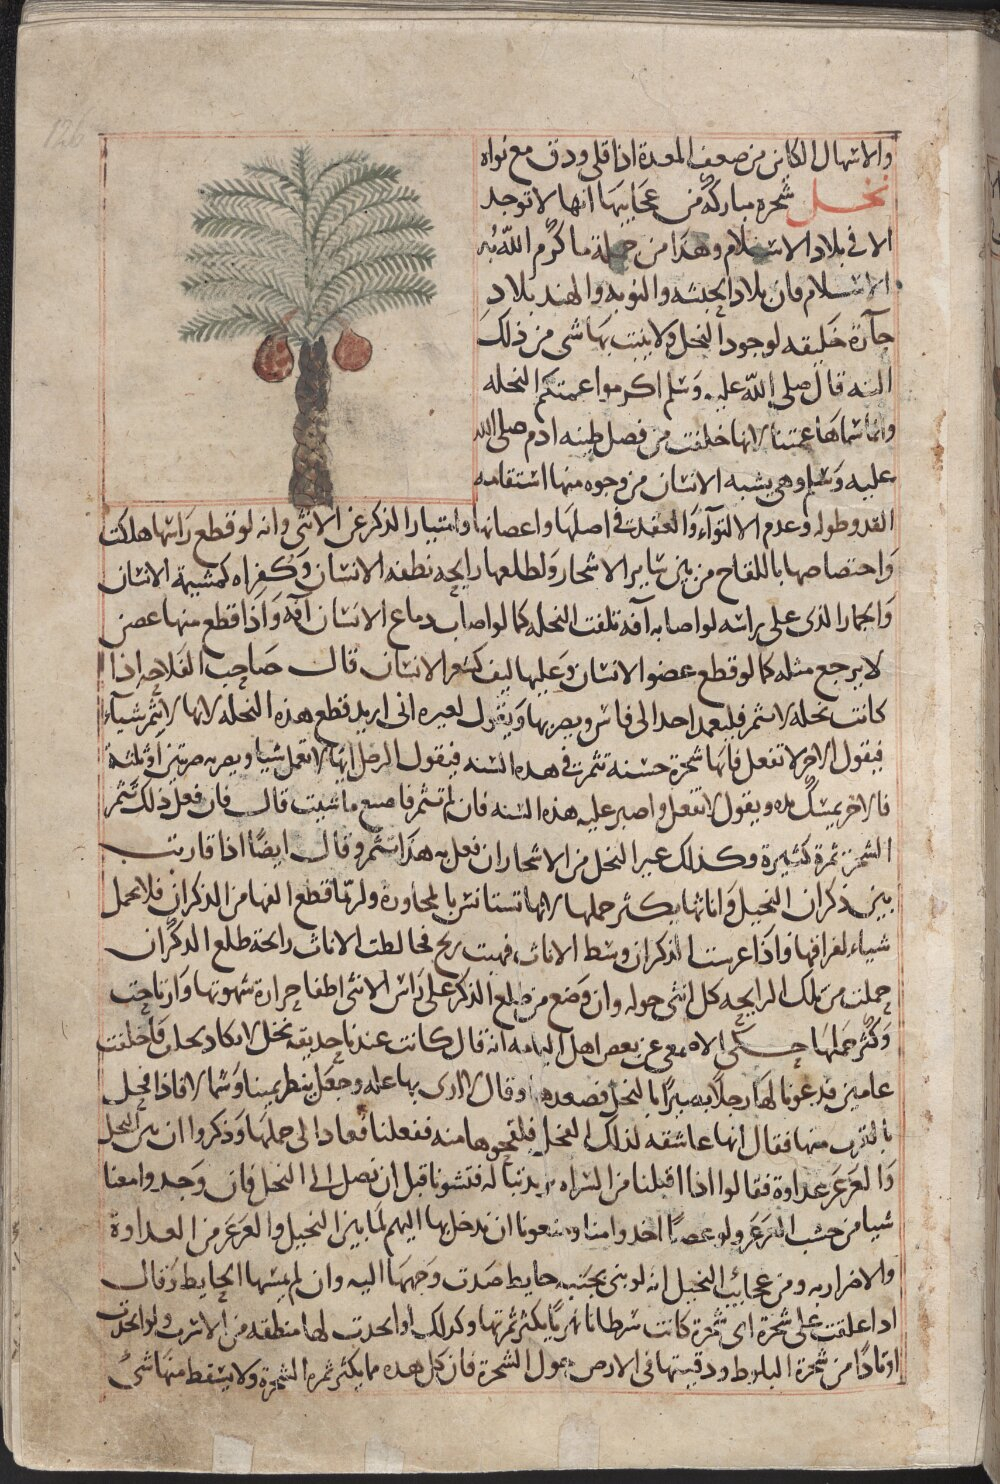 والاسهال الكاين من ضعف المعدة اذا قلى ودق مع نواه
نخل شجرة مباركة من عجايبها انها لا توجد
الا فى بلاد الاسلام وهذا من جملة ما كرم الله به
الاسلام فان بلاد الحبشه والنوبه والهند بلاد
حارة خليقه لوجود النخل ولا ينبت بها شى من ذلك
البته قال صلى الله عليه وسلم اكرموا عمتكم النخله
وانما سماها عمتنا لانها خلقت من فضل طينه ادم صلى الله
عليه وسلم وهى يشبه الانسان من وجوه منها استقامه
القد وطوله وعدم الالتوآء والعقد فى اصلها واغصانها وامتياز الذكر عن الانثى وانه لو قطع راسها هلكت
واختصاصها باللقاح من بين ساير الاشجار ولطلعها رايحه نطفه الانسان وكفراه كمشيمة الانسان
والجمار الذى على راسه لو اصابه آفه تلفت النخله كما لو اصاب دماغ الانسان آفه واذا قطع منها غصن
لا يرجع مثله كما لو قطع عضو الانسان وعليها ليف كشعر الانسان قال صاحب الفلاحه اذا
كانت نخله لا تثمر فليعمد احدا الى فاس ويضربها ويقول لغيره انى اريد قطع هذه النخله لانها لا تثمر شيآء
فيقول الاخر لا تفعل فانها شجرة حسنه تثمر فى هذه السنه فيقول الرجل انها لا تعمل شيا ويضربه ضربتين او ثلثة
فالاخر يمسك يده ويقول لا تفعل واصبر عليه هذه السنه فان لم تثمر فاصنع ما شيت قال فان فعل ذلك تثمر
الشجرة ثمرة كثيرة وكذلك غير النخل من الاشجار ان فعل به هذا تثمر وقال ايضًا اذا قاربت
بين ذكران النخيل واناثها يكثر حملها لانها تستانس بالمجاورة ولربما قطع الفها من الذكران فلا تحمل
شياء لفراقها واذا غرست الذكران وسط الاناث فهبت ريح فخالطت الاناث رايحة طلع الذكران
حملت من تلك الرايحه كل انثى حوله وان وضع من طلع الذكر على راس الانثى اطفا حرارة شهوتها وارتاحت
وكثر حملها حكى الاصمعى عن بعض اهل اليمامه انه قال كانت عندنا حديقه نخل لا تكاد تحلف فاخلفت
عامين فدعونا لها رجلا بصيرًا بالنخل فصعدها وقال لا ارى بها علة وجعل ينظر يمينا وشمالا فاذا فحل
بالقرب منها فقال انها عاشقه لذلك الفحل فلقحوها منه ففعلنا فعاد الى حملها وذكروا ان بين النخل
والعرعر عداوة فقالوا اذا اقبلنا من السراه يريد تباله فتشونا قبل ان نصل الى النخل فان وجدوا معنا
شيا من خشب العرعر ولو عصًا اخدوا منا ومنعونا ان ندخل بها اليهم لما بين النخيل والعرعر من العداوة
والاضرار به ومن عجائب النخيل انه لو بنى بجنبه حايط صدت وجهها اليه وان لم يمسها الحايط وقال
اذا علقت على شجرة اى شجرة كانت سرطانا نهريًا يكثر ثمرتها وكذلك لو اتخدت لها منطقه من الاسرب ولو اتخذت
اوتادًا من شجرة البلوط ودفنتها فى الارض حول الشجرة فان كل هذه مما يكثر ثمر الشجرة ولا يسقط منها شئ